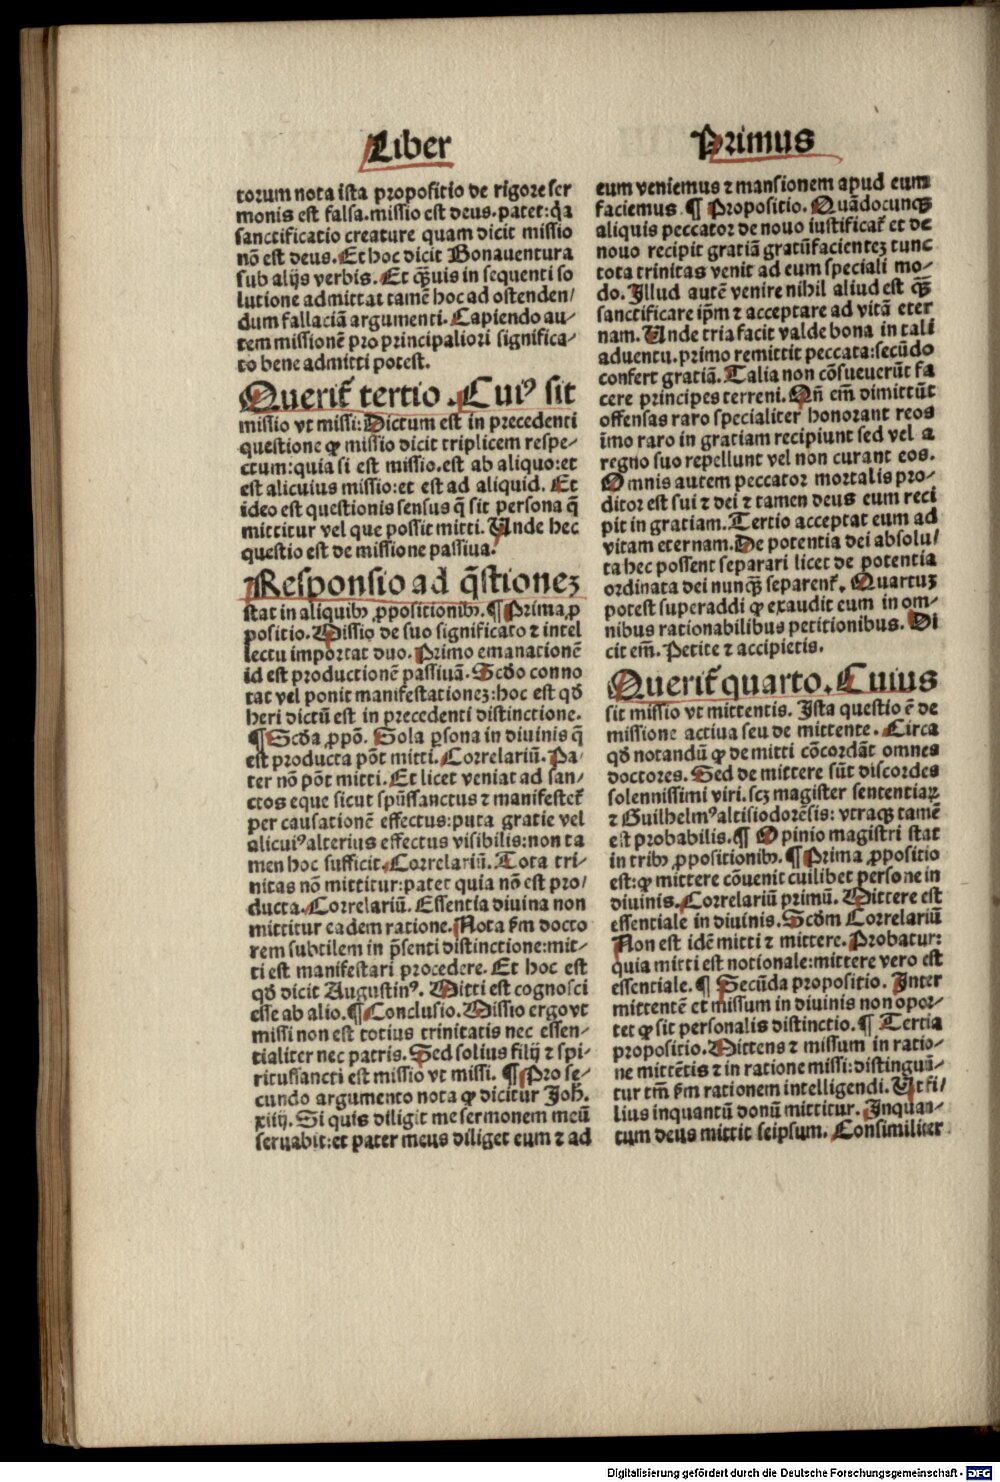 Liber
torum nota ista propositio de rigore ser
monis est falsa.missio est deus.patet:q̃a
sanctificatio creature quam dicit missio
nō est deus.Et hoc dicit Bonauentura
sub alijs verbis.Et qȝuis in sequenti so
lutione admittat tamē hoc ad ostenden/
dum fallaciā argumenti.Capiendo au-
tem missionē pro principaliori significa-
to bene admitti potest.
Querit̃ tertio.Cuiꝰ sit
missio vt missi:Dictum est in precedenti
questione ꝙ missio dicit triplicem respe-
ctum:quia si est missio.est ab aliquo:et
est alicuius missio:et est ad aliquid. Et
ideo est questionis sensus q̄ sit persona q̄
mittitur vel que possit mitti.Unde hec
questio est de missione passiua.
Responsio ad q̄stionez
stat in aliquibꝫ ꝓpositionibꝫ.¶ Prima ꝓ
positio.Missio de suo significato ⁊ intel
lectu importat duo. Primo emanationē
id est productionē passiuā. Scd̃o conno
tat vel ponit manifestationez:hoc est qd̃
heri dictū est in precedenti distinctione.
¶ Scd̃a ꝓpō. Sola ꝑsona in diuinis q̄
est producta pōt mitti.Correlariū. Pa-
ter nō pōt mitti.Et licet veniat ad san-
ctos eque sicut spūssanctus ⁊ manifestet̃
per causationē effectus:puta gratie vel
alicuiꝰ alterius effectus visibilis:non ta
men hoc sufficit.Correlariū.Tota tri-
nitas nō mittitur:patet quia nō est pro/
ducta.Correlariū. Essentia diuina non
mittitur eadem ratione.Nota ẜm docto
rem subtilem in p̄senti distinctione:mit-
ti est manifestari procedere. Et hoc est
qd̃ dicit Augustinꝰ. Mitti est cognosci
esse ab alio.¶ Conclusio.Missio ergo vt
missi non est totius trinitatis nec essen-
tialiter nec patris. Sed solius filij ⁊ spi-
ritussancti est missio vt missi. ¶ Pro se-
cundo argumento nota ꝙ dicitur Joh̃.
xiiij. Si quis diligit me sermonem meū
seruabit:et pater meus diliget eum ⁊ ad
Primus
eum veniemus ⁊ mansionem apud eum
faciemus ¶ Propositio. Quādocunqȝ
aliquis peccator de nouo iustificat̃ et de
nouo recipit gratiā gratūfacientez tunc
tota trinitas venit ad eum speciali mo-
do. Illud autē venire nihil aliud est qȝ
sanctificare ip̄m ⁊ acceptare ad vitā eter
nam. Unde tria facit valde bona in tali
aduentu.primo remittit peccata:secūdo
confert gratiā. Talia non cōsueuerūt fa
cere principes terreni.Qñ em̄ dimittūt
offensas raro specialiter honorant reos
īmo raro in gratiam recipiunt sed vel a
regno suo repellunt vel non curant eos.
Omnis autem peccator mortalis pro-
ditor est sui ⁊ dei ⁊ tamen deus eum reci
pit in gratiam.Tertio acceptat eum ad
vitam eternam.De potentia dei absolu/
ta hec possent separari licet de potentia
ordinata dei nunqȝ separent̃. Quartuz
potest superaddi ꝙ exaudit eum in om-
nibus rationabilibus petitionibus. Di
cit em̄. Petite ⁊ accipietis.
Querit̃ quarto.Cuius
sit missio vt mittentis. Ista questio ē de
missione actiua seu de mittente. Circa
qd̃ notandū ꝙ de mitti cōcordāt omnes
doctores. Sed de mittere sūt discordes
solennissimi viri.scȝ magister sententiaꝝ
⁊ Guilhelmꝰ altisiodorēsis: vtraqȝ tamē
est probabilis.¶ Opinio magistri stat
in tribꝫ ꝓpositionibꝫ.¶ Prima ꝓpositio
est:ꝙ mittere cōuenit cuilibet persone in
diuinis.Correlariū primū. Mittere est
essentiale in diuinis. Scd̃m Correlariū
Non est idē mitti ⁊ mittere. Probatur:
quia mitti est notionale:mittere vero est
essentiale.¶ Secūda propositio. Inter
mittentē et missum in diuinis non opor-
tet ꝙ sit personalis distinctio.¶ Tertia
propositio.Mittens ⁊ missum in ratio-
ne mittētis ⁊ in ratione missi:distinguū-
tur tm̄ ẜm rationem intelligendi. Ut fi/
lius inquantū donū mittitur. Inquan-
tum deus mittit seipsum. Consimiliter
Digitalisierung gefördert durch die Deutsche Forschungsgemeinschaft - DFG